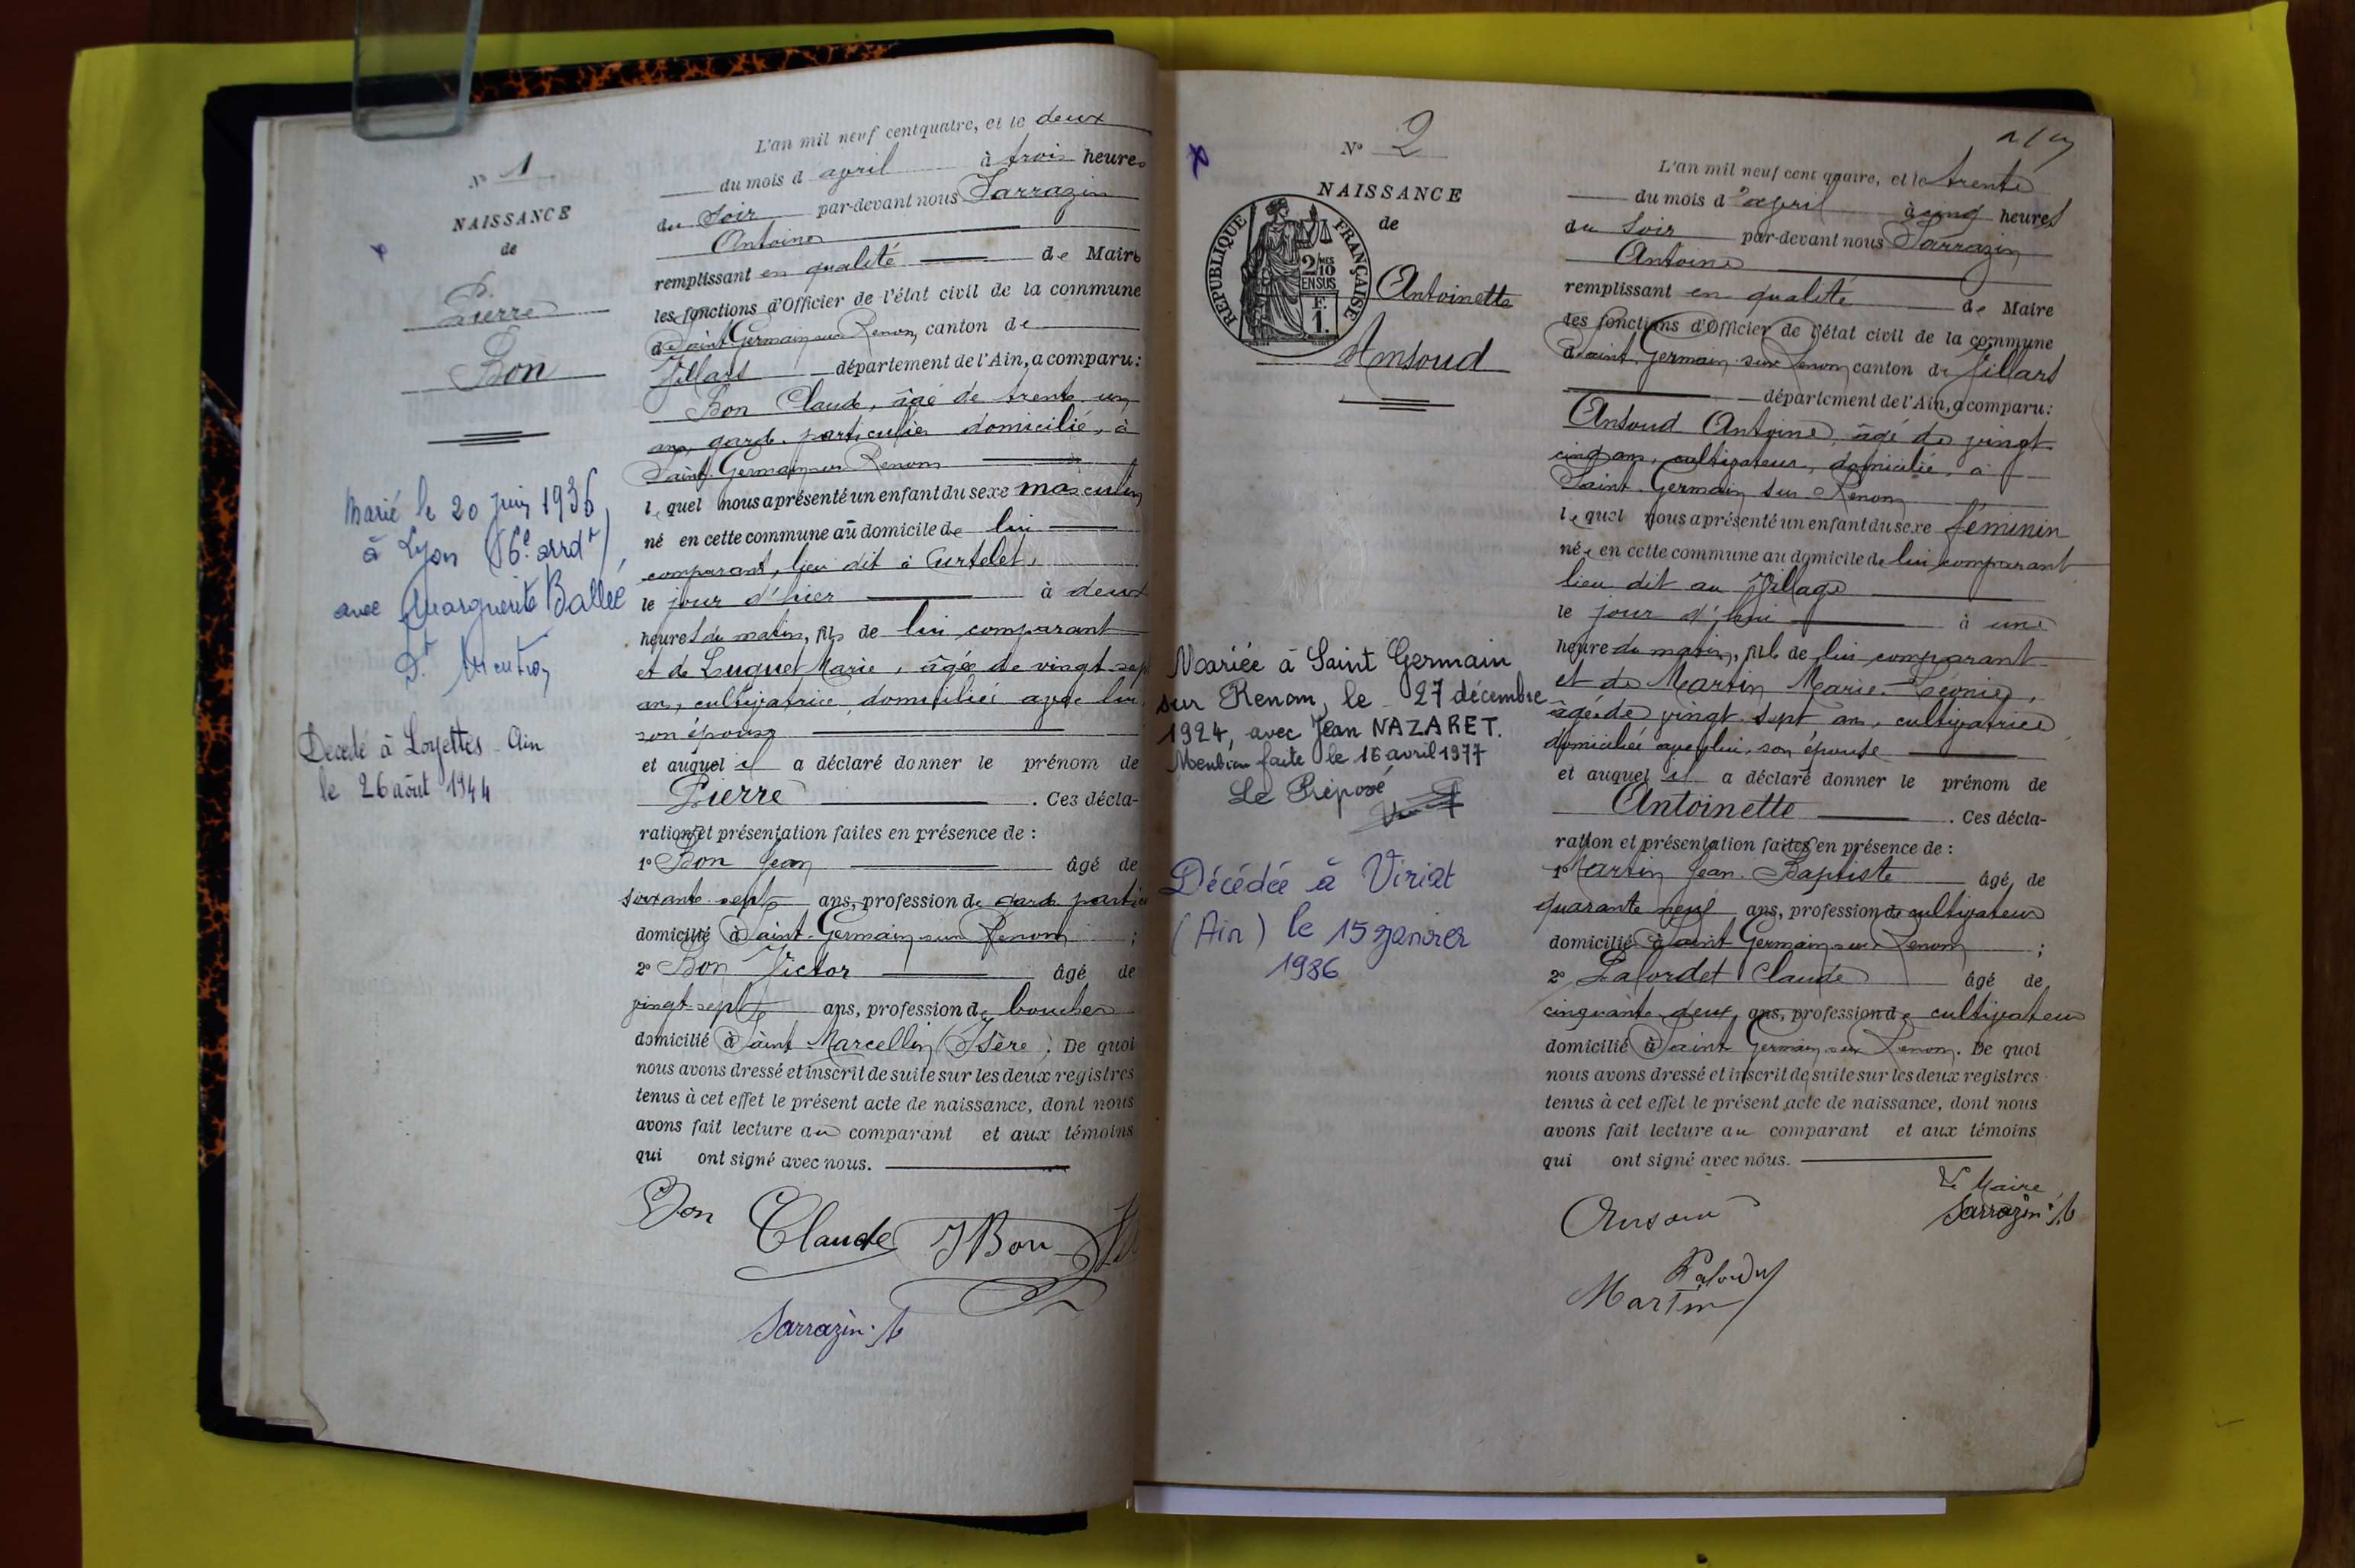 N° 1
NAISSANCE
de
Pierre
Bon
Marié le 20 juin 1936
à Lyon (6e arrdt)
avec Marguerite Ballée
Dt Mention
Décédé à Loyettes Ain
le 26 août 1944
L'an mil neuf cent quatre, et le deux
du mois d avril à trois heures
du soir par-devant nous Sarrazin
Antoine
remplissant en qualité de Maire
les fonctions d'Officier de l'état civil de la commune
de Saint-Germain sur Renom, canton de
Villars département de l'Ain, a comparu:
Bon Claude, âgé de trente un
ans, garde particulier domicilié, à
Saint-Germain sur Renom
lequel nous a présenté un enfant du sexe masculin
né en cette commune au domicile de lui
comparant, lieu dit à Curtelet,
le jour d'hier à deux
heures du matin, fils de lui comparant
et de Luguet Marie, âgée de vingt-sept
ans, cultivatrice, domiciliée avec lui,
son épouse
et auquel il a déclaré donner le prénom de
Pierre . Ces décla-
ration et présentation faites en présence de :
1° Bon Jean âgé de
soixante-sept ans, profession de garde partic
domicilié à Saint-Germain sur Renom ;
2° Bon Victor âgé de
vingt-sept ans, profession de boucher
domicilié à Saint Marcellin (Isère). De quoi
nous avons dressé et inscrit de suite sur les deux registres
tenus à cet effet le présent acte de naissance, dont nous
avons fait lecture au comparant et aux témoins
qui ont signé avec nous.
Bon Claude JBon
Sarrazin. A
N° 2
NAISSANCE
de
Antoinette
Ansoud
RÉPUBLIQUE FRANÇAISE
2/10 MES
EN SUS
F.
1.
Mariée à Saint Germain
sur Renom, le 27 décembre
1924, avec Jean NAZARET.
Mention faite le 16 avril 1977
Le Préposé
Décédée à Viriat
(Ain) le 15 janvier
1986
L'an mil neuf cent quatre, et le trente
du mois d'avril à cinq heures
du soir par-devant nous Sarrazin
Antoine
remplissant en qualité de Maire
les fonctions d'Officier de l'état civil de la commune
de Saint-Germain sur Renom, canton de Villars
département de l'Ain, a comparu:
Ansoud Antoine, âgé de vingt
cinq ans, cultivateur, domicilié, à
Saint-Germain sur Renom
lequel nous a présenté un enfant du sexe féminin
née en cette commune au domicile de lui comparant
lieu dit au Village
le jour d'hui à une
heure du matin, fille de lui comparant
et de Martin Marie-Léonie,
âgée de vingt-sept ans, cultivatrice
domiciliée avec lui, son épouse
et auquel il a déclaré donner le prénom de
Antoinette . Ces décla-
ration et présentation faites en présence de :
1° Martin Jean-Baptiste âgé de
quarante neuf ans, profession de cultivateur
domicilié à Saint Germain sur Renom ;
2° Lafordet Claude âgé de
cinquante-deux ans, profession de cultivateur
domicilié à Saint Germain sur Renom. De quoi
nous avons dressé et inscrit de suite sur les deux registres
tenus à cet effet le présent acte de naissance, dont nous
avons fait lecture au comparant et aux témoins
qui ont signé avec nous.
Le Maire
Ansoud Sarrazin. A
Martin